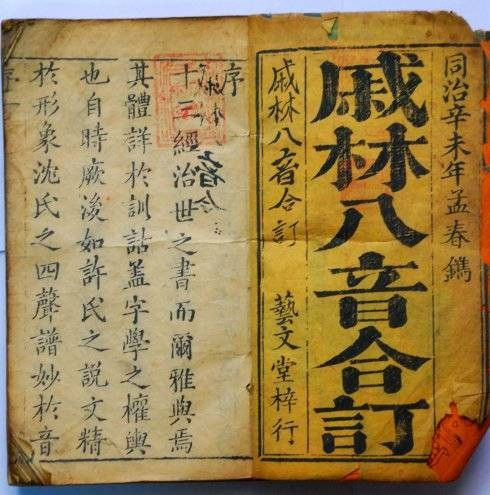 同治辛未年孟春鐫
戚林八音合訂
戚林八音合訂 藝文堂梓行
序
十三經治世之書而爾雅與焉
其體詳於訓詁蓋字學之權輿
也自時厥後如許氏之說文精
於形象沈氏之四聲譜妙於音
序